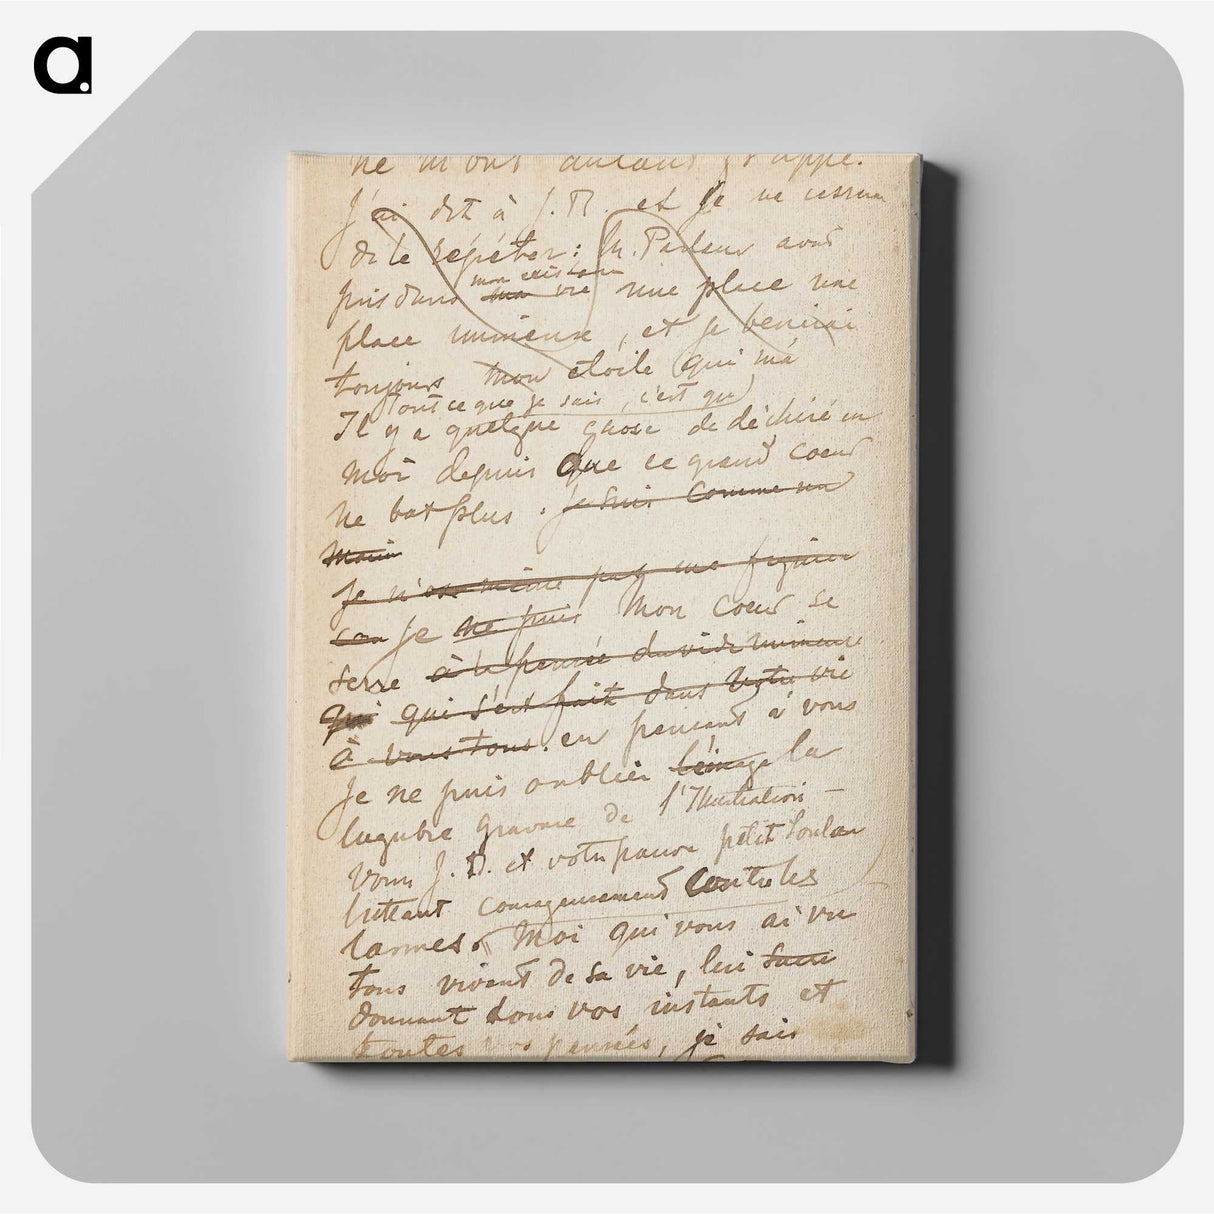 a.
ne m'ont autant frappé.
J'ai dit à J. B. et je ne cesserai
de le répéter : M. Pasteur avait
mon existence
pris dans ma vie une place une
place immense, et je bénirai
toujours mon étoile qui m'a
Tout ce que je sais, c'est qu'
Il y a quelque chose de déchiré en
moi depuis que ce grand coeur
ne bat plus. je suis comme un
Je n'ose même pas me figurer
Je ne puis Mon coeur se
serre à la pensée du vide immense
qui qui s'est fait dans votre vie
à vous tous. en pensant à vous
Je ne puis oublier l'image la
lugubre gravure de l'Illustration –
vous J. B. et votre pauvre petit
luttant courageusement contre les
larmes. Moi qui vous ai vu
tous vivant de sa vie, lui
donnant tous vos instants et
toutes vos pensées, je sais